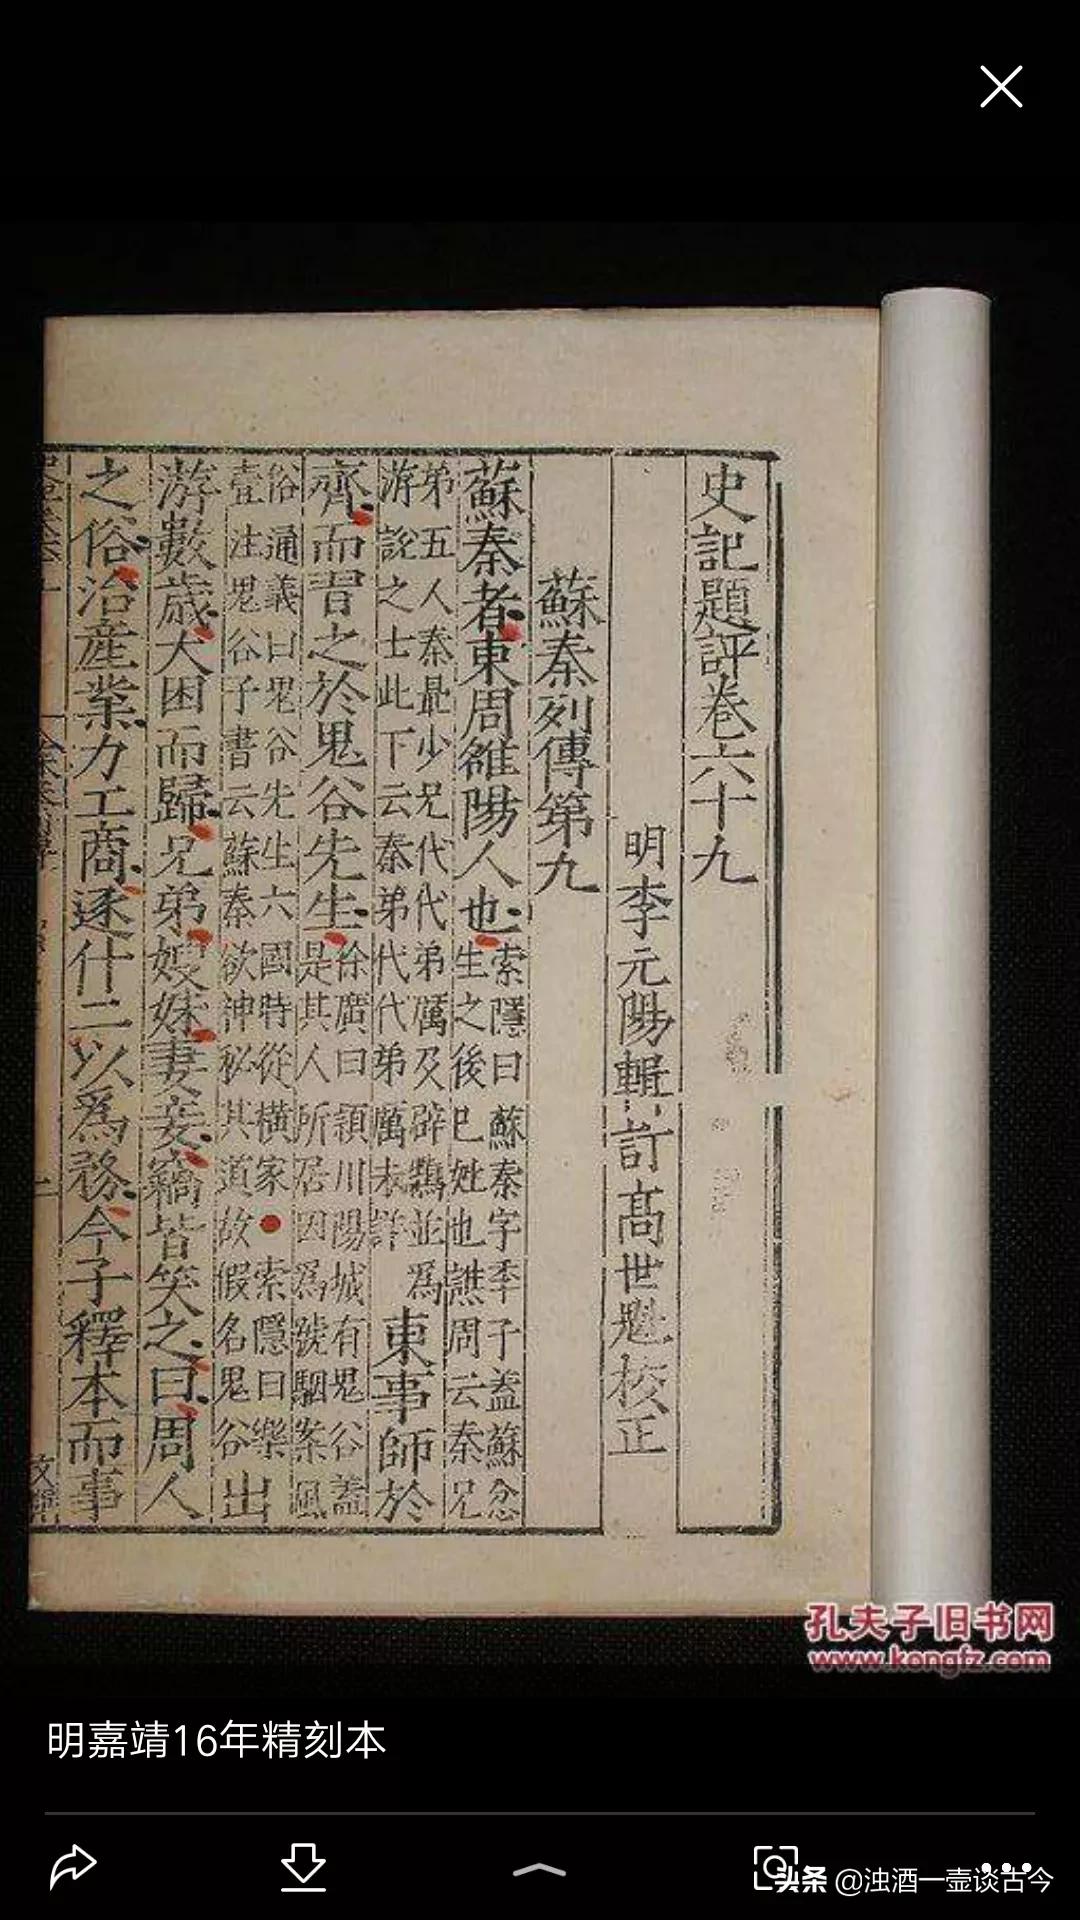 史記題評卷六十九
明李元陽輯訂高世魁校正
蘇秦列傳第九
蘇秦者東周雒陽人也
索隱曰蘇秦字季子蓋蘇忿
生之後巳姓也譙周云秦兄
弟五人秦最少兄代代弟厲及辟鵠並為
游說之士此下云秦弟代代弟厲未詳
東事師於
齊而習之於鬼谷先生
徐廣曰潁川陽城有鬼谷蓋
是其人所居因為號駰案風
俗通義曰鬼谷先生六國時從橫家●索隱曰樂
壹注鬼谷子書云蘇秦欲神秘其道故假名鬼谷
出
游數歲大困而歸兄弟嫂妹妻妾竊皆笑之曰周人
之俗治產業力工商逐什二以為務今子釋本而事
孔夫子旧书网
www.kongfz.com
明嘉靖16年精刻本
头条 @浊酒一壶谈古今